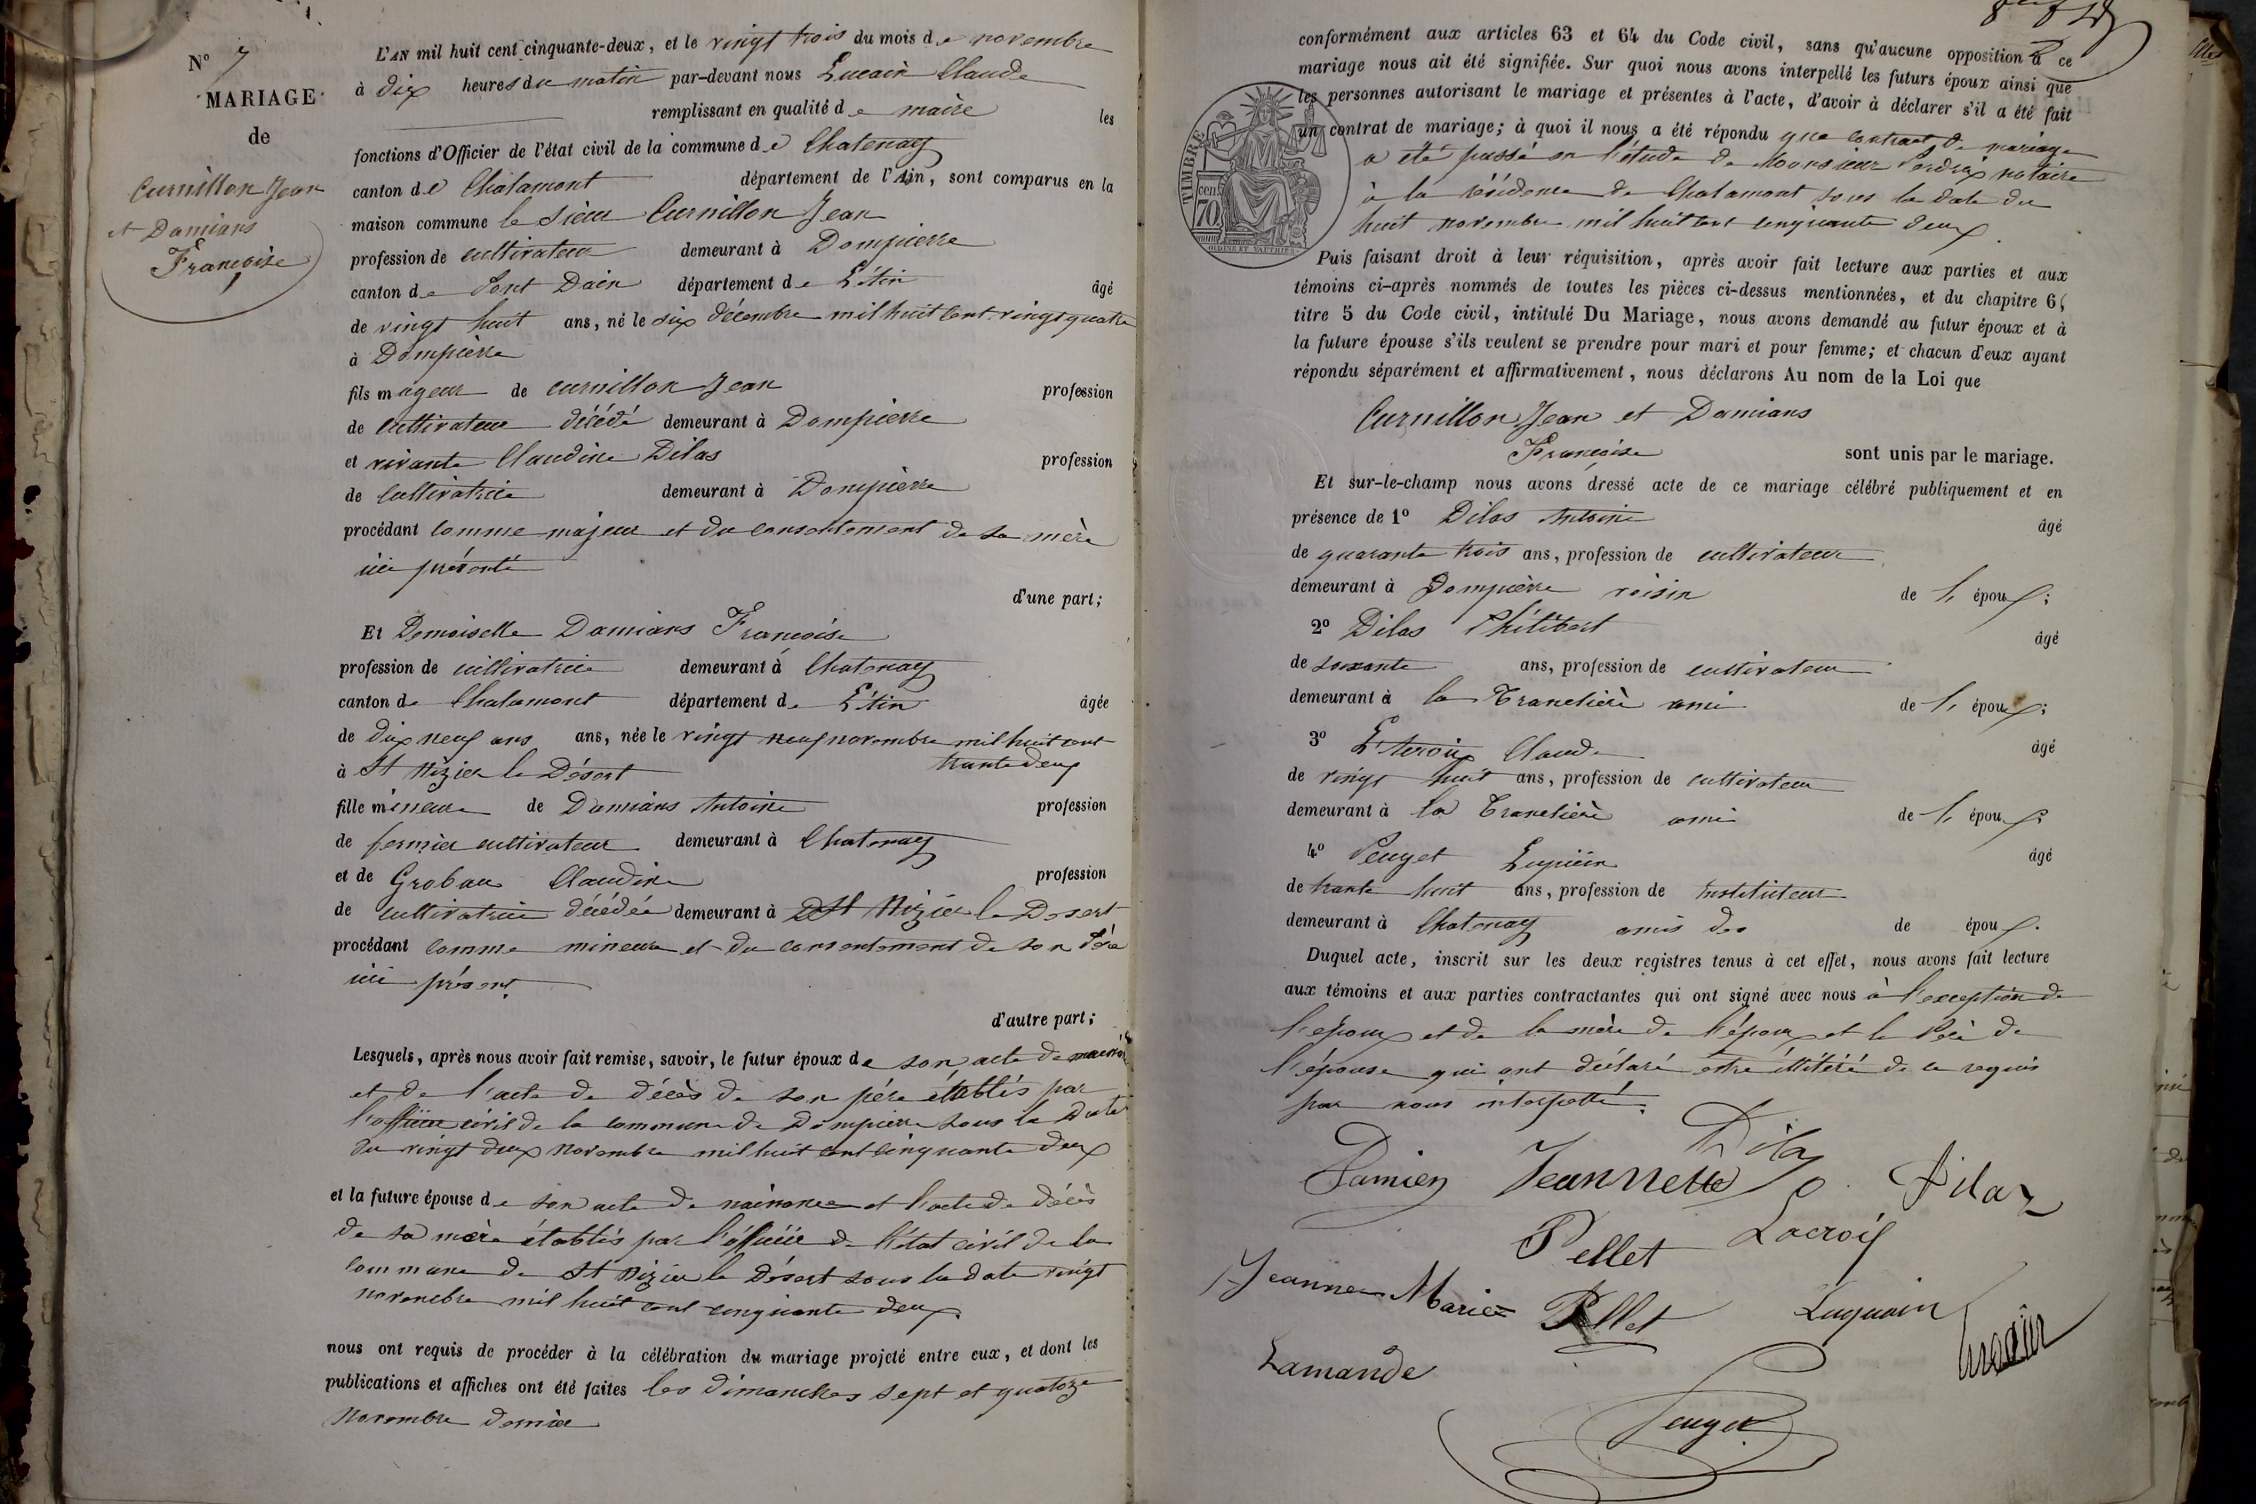 N° 7
MARIAGE
de
Curnillon Jean
et Damians
Francoise
L'AN mil huit cent cinquante-deux, et le vingt trois du mois de novembre
à dix heures du matin par-devant nous Lucain Claude
remplissant en qualité de maire les
fonctions d'Officier de l'état civil de la commune de Chatenay
canton de Chalamont département de l'Ain, sont comparus en la
maison commune le sieur Curnillon Jean
profession de cultivateur demeurant à Dompierre
canton de Pont Dain département de L'Ain âgé
de vingt huit ans, né le six décembre mil huit cent vingt quatre
à Dompierre
fils mageur de curnillon Jean profession
de cultivateur décédé demeurant à Dompierre
et vivante Claudine Dilas profession
de Cultivatrice demeurant à Dompierre
procédant comme majeur et du consentement de sa mère
ici présente
d'une part;
Et Demoiselle Damians Francoise
profession de cultivatrice demeurant à Chatenay
canton de Chalamont département de L'Ain âgée
de dix neuf ans ans, née le vingt neuf novembre mil huit cent
trente deux
à St Nizier le Désert
fille mineure de Damians Antoine profession
de fermier cultivateur demeurant à Chatenay
et de Grobau Claudine profession
de cultivatrice décédée demeurant à St Nizier le Desert
procédant comme mineure et du consentement de son Père
ici présent
d'autre part;
Lesquels, après nous avoir fait remise, savoir, le futur époux de son acte de
et de l'acte de décès de son père établis par
l'officier civil de la commune de Dompierre sous la Date
du vingt deux novembre mil huit cent cinquante deux
et la future épouse de son acte de naisance et l'acte de décès
de sa mère établis par l'officier de l'état civil de la
commune de St Nizier le Désert sous la date vingt
novembre mil huit cent cinquante deux
nous ont requis de procéder à la célébration du mariage projeté entre eux, et dont les
publications et affiches ont été faites les dimanches sept et quatoze
Novembre dernier
conformément aux articles 63 et 64 du Code civil, sans qu'aucune opposition à ce
mariage nous ait été signifiée. Sur quoi nous avons interpellé les futurs époux ainsi que
les personnes autorisant le mariage et présentes à l'acte, d'avoir à déclarer s'il a été fait
un contrat de mariage; à quoi il nous a été répondu que contract de mariage
a été passé en l'étude de Monsieur Perdrix notaire
à la résidence de Chalamont sous la date du
huit novembre mil huit cent cinquante deux
TIMBRE
cen
70
Puis faisant droit à leur réquisition, après avoir fait lecture aux parties et aux
témoins ci-après nommés de toutes les pièces ci-dessus mentionnées, et du chapitre 6,
titre 5 du Code civil, intitulé Du Mariage, nous avons demandé au futur époux et à
la future épouse s'ils veulent se prendre pour mari et pour femme; et chacun d'eux ayant
répondu séparément et affirmativement, nous déclarons Au nom de la Loi que
Curnillon Jean et Damians
Francoise sont unis par le mariage.
Et sur-le-champ nous avons dressé acte de ce mariage célébré publiquement et en
présence de 1° Dilas Antoine âgé
de quarante trois ans, profession de cultivateur
demeurant à Dompierre voisin de l' époux;
2° Dilas Philibert âgé
de soixante ans, profession de cultivateur
demeurant à la Tranclière ami de l' époux;
3° Claude âgé
de vingt huit ans, profession de cultivateur
demeurant à la Tranclière ami de l' époux;
4° Peuget Lupicin âgé
de trante huit ans, profession de Instituteur
demeurant à Chatenay amis des de époux.
Duquel acte, inscrit sur les deux registres tenus à cet effet, nous avons fait lecture
aux témoins et aux parties contractantes qui ont signé avec nous à l'exception de
l'époux et de la mère de l'époux et le Père de
l'épouse qui ont déclaré estre illitéré de ce requis
par nous interpellé.
Dilas
Damien Jeannette Dilas
Pellet Lacroix
Jeanne Marie Pellet Luquain
Lamande
Peuget